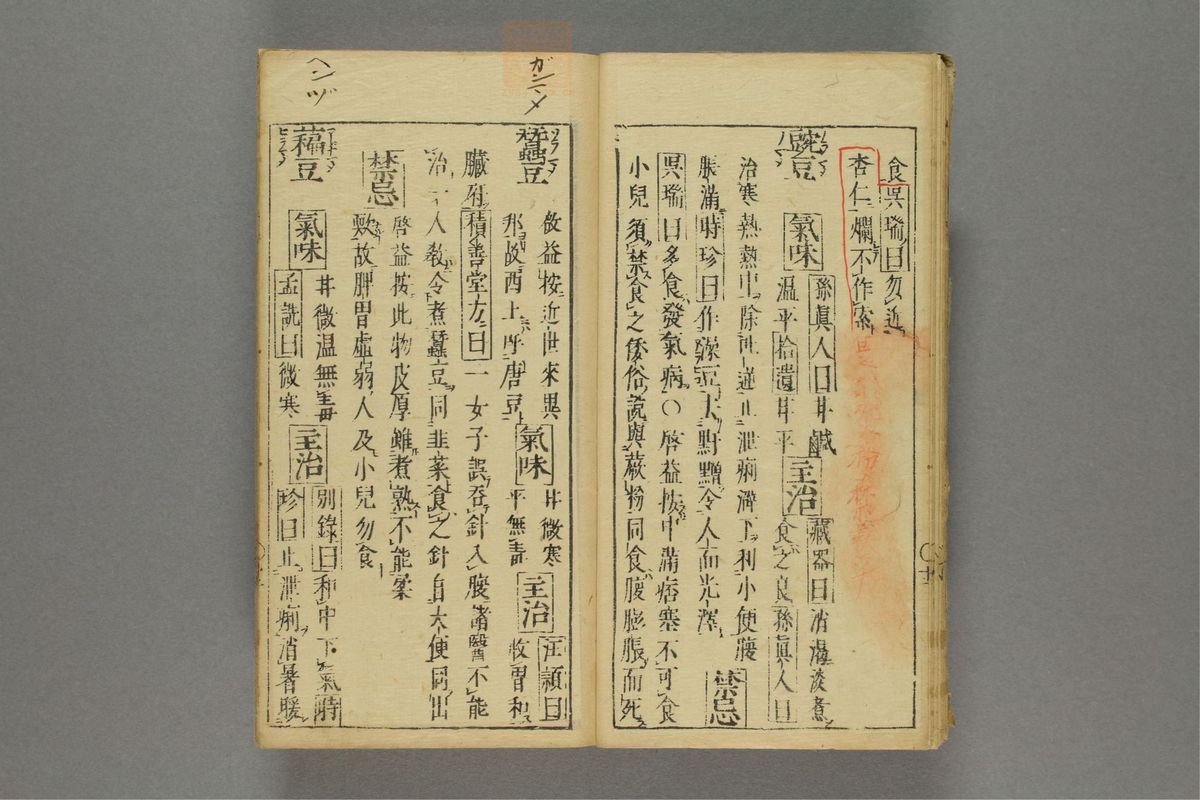 食呉瑞曰勿近
杏仁爛不作索
豌豆
氣味
孫眞人曰甘鹹
温平拾遺甘平
主治
藏器曰消渇淡煮
食之良孫眞人曰
治寒熱熱中除吐逆止泄痢澼下利小便腹
脹滿時珍曰作澡豆去䵟䵳令人面光澤
禁忌
呉瑞曰多食發氣病〇啓益按中滿痞塞不可食
小兒須禁食之倭俗説與蕨粉同食腹膨脹而死
ガンマメ
蠶豆
啓益按近世來異
邦故西土呼唐豆
氣味
甘微寒
平無毒
主治
汪頴曰
收胃和
臓府積善堂方曰一女子誤吞針入腹諸醫不能
治一人敎令煮蠶豆同韭菜食之針自大便同出
禁忌
啓益按此物皮厚雖煮熟不能柔
軟故脾胃虚弱人及小兒勿食
ヘンヅ
藊豆
氣味
甘微温無毒
孟詵曰微寒
主治
別錄曰和中下氣時
珍曰止泄痢消暑暖